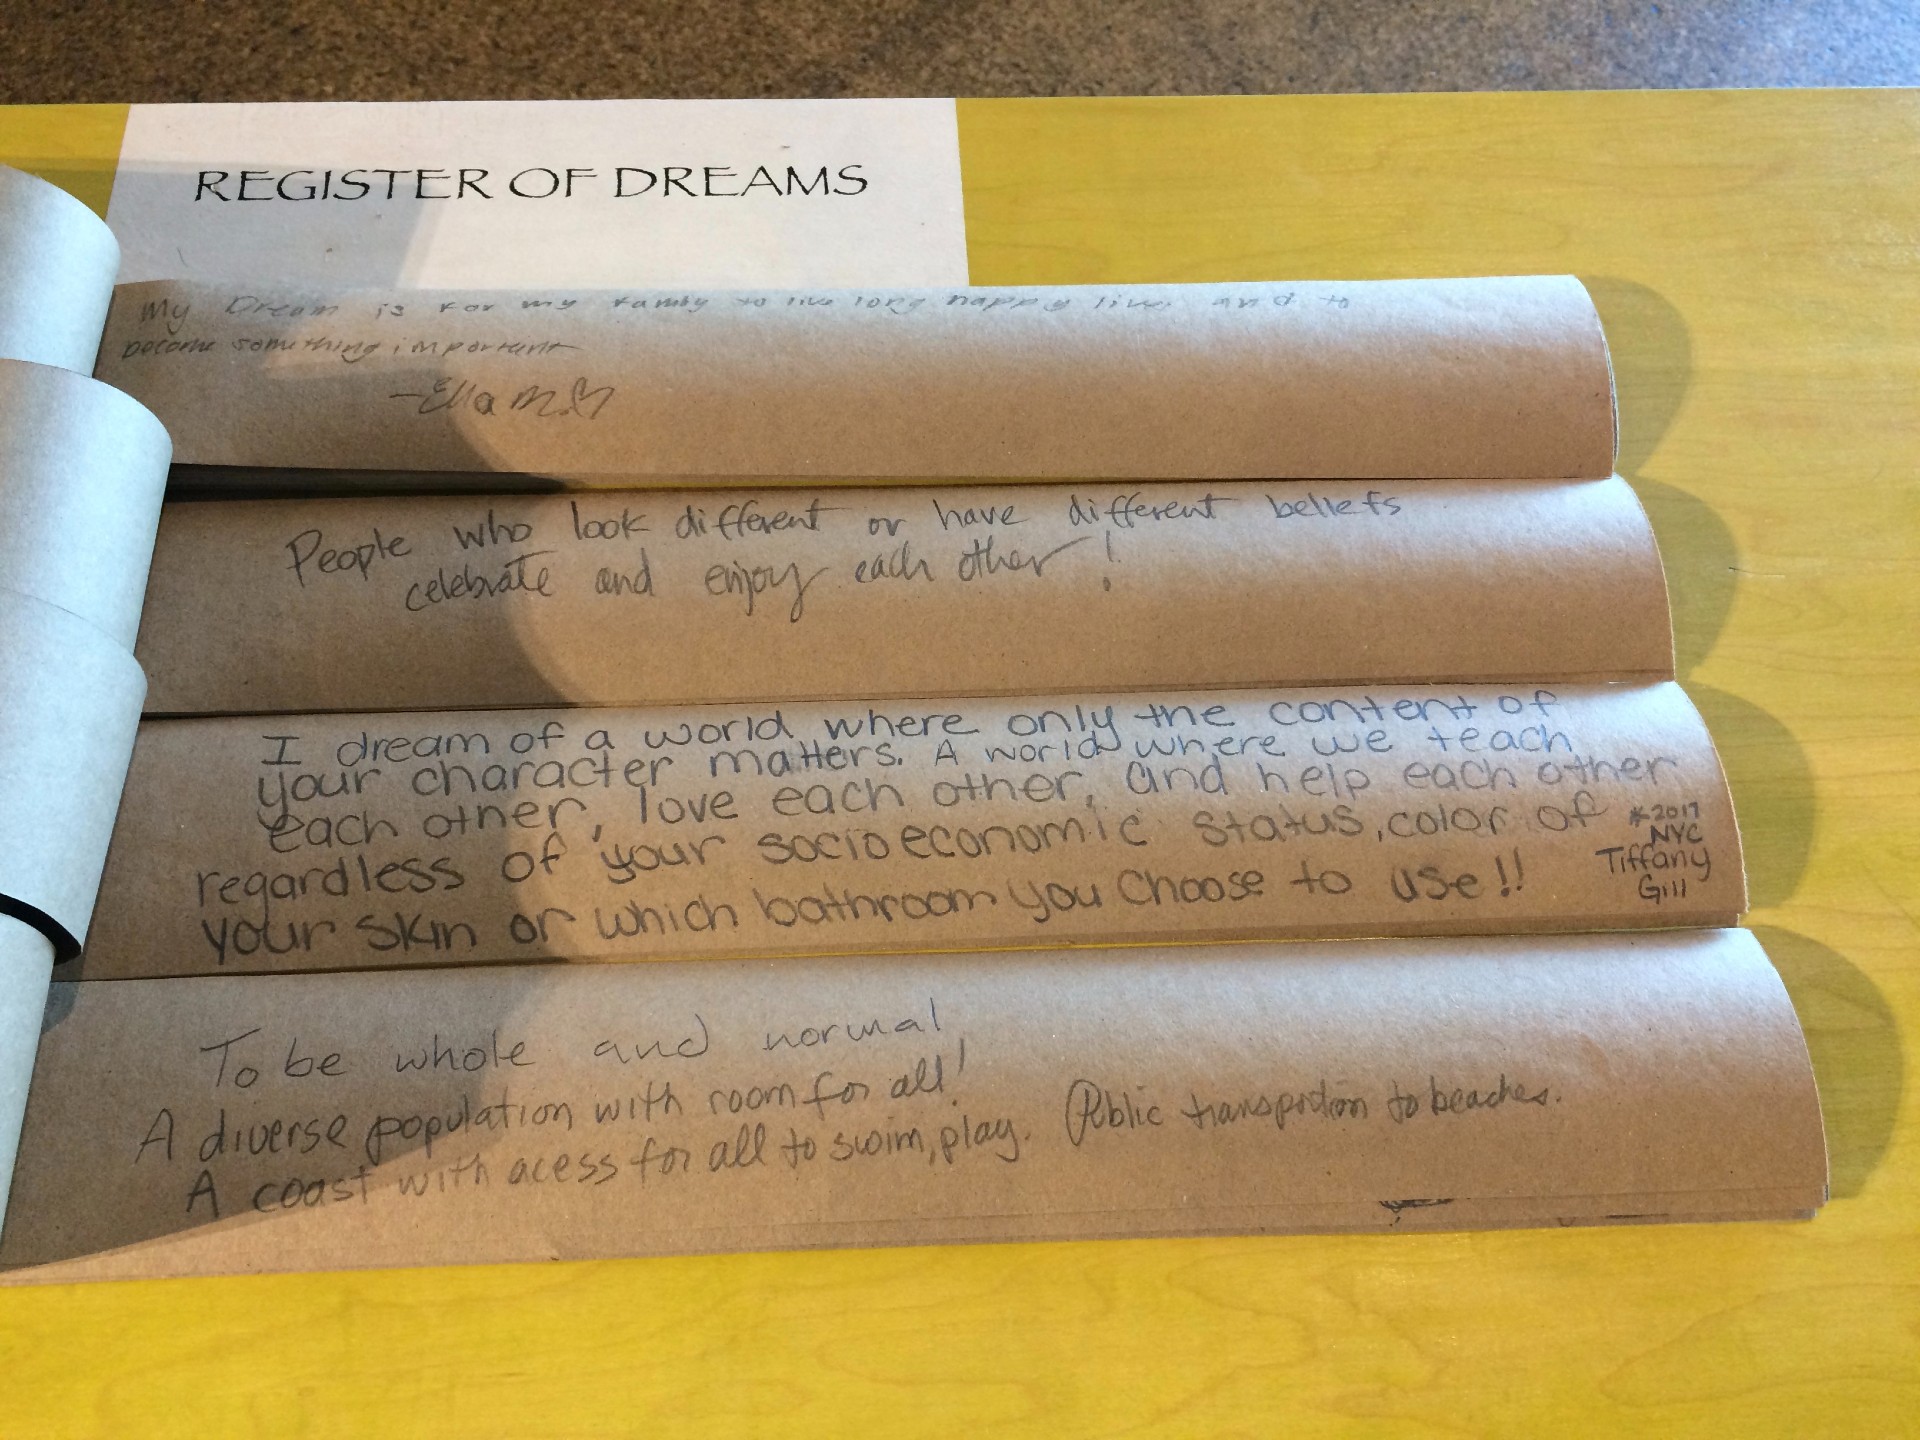 REGISTER OF DREAMS
My Dream is for my family to live long happy live and to
become something important
-Ella M.
People who look different or have different beliefs
celebrate and enjoy each other!
I dream of a world where only the content of
your character matters. A world where we teach
each other, love each other, and help each other
regardless of your socioeconomic status, color of
your skin or which bathroom you choose to use!!
*2017
NYC
Tiffany
Gill
To be whole and normal
A diverse population with room for all!
A coast with acess for all to swim, play. Public transportion to beaches.